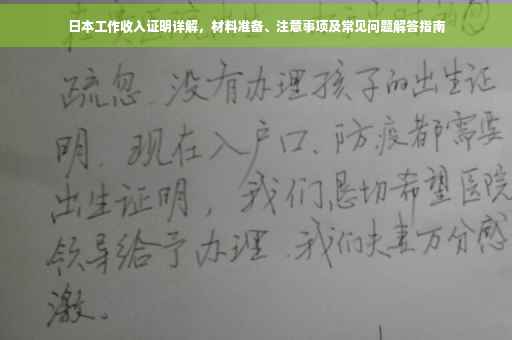 日本工作收入证明详解，材料准备、注意事项及常见问题解答指南
疏忽、没有办理孩子的出生证
明、现在入户口、防疫都需要
出生证明，我们恳切希望医院
领导给予办理、我们夫妻万分感
激。